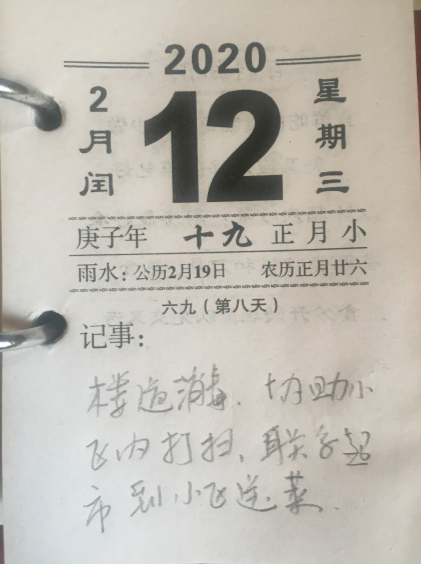 2020
2月闰
12
星期三
庚子年 十九 正月小
雨水：公历2月19日 农历正月廿六
六九（第八天）
记事：
楼道消毒．协助小
区内打扫、联系超
市到小区送菜．